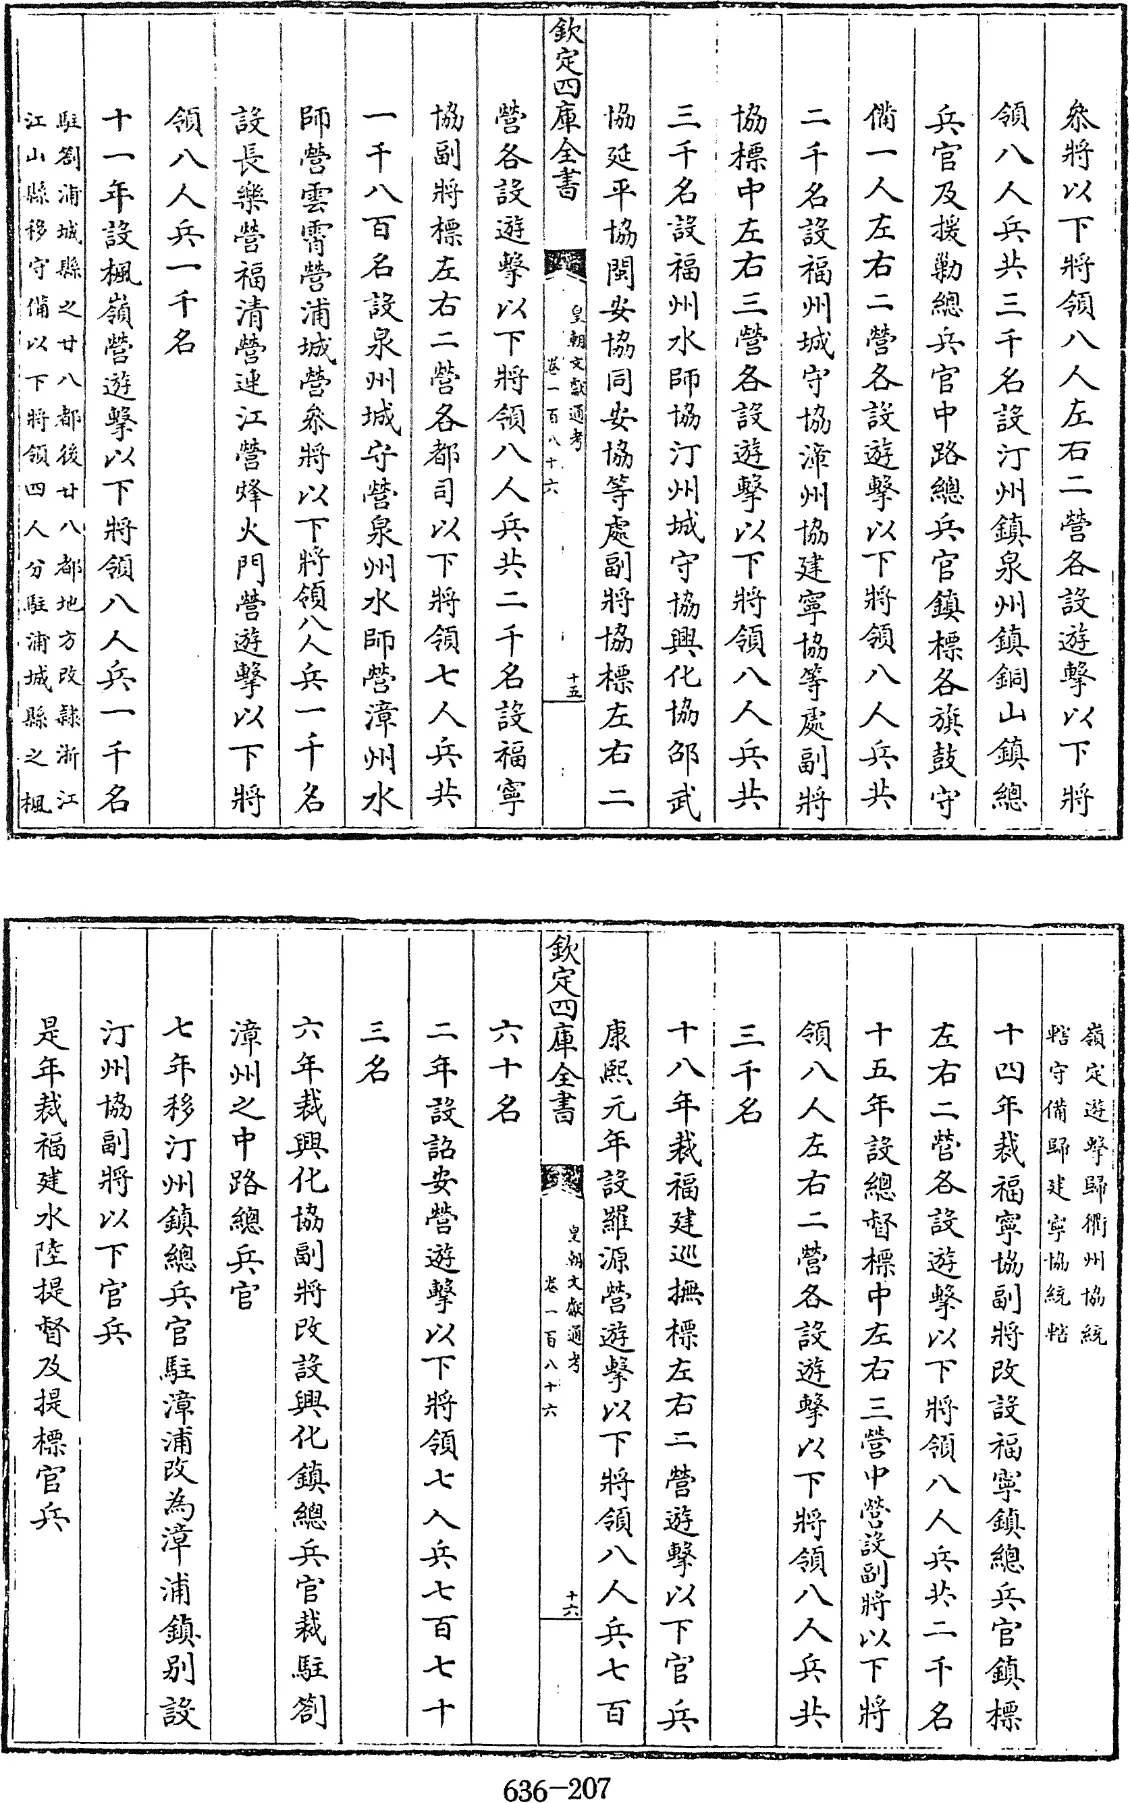 叅將以下將領八人左右二營各設遊擊以下將
領八人兵共三千名設汀州鎮泉州鎮銅山鎮總
兵官及援勦總兵官中路總兵官鎮標各旗鼓守
備一人左右二營各設遊擊以下將領八人兵共
二千名設福州城守協漳州協建寧協等處副將
協標中左右三營各設遊擊以下將領八人兵共
三千名設福州水師協汀州城守協興化協邵武
協延平協閩安協同安協等處副將協標左右二
欽定四庫全書
皇朝文獻通考
卷一百八十六
十五
營各設遊擊以下將領八人兵共二千名設福寧
協副將標左右二營各都司以下將領七人兵共
一千八百名設泉州城守營泉州水師營漳州水
師營雲霄營浦城營叅將以下將領八人兵一千名
設長樂營福清營連江營烽火門營遊擊以下將
領八人兵一千名
十一年設楓嶺營遊擊以下將領八人兵一千名
駐劄浦城縣之廿八都後廿八都地方改隷浙江
江山縣移守備以下將領四人分駐浦城縣之楓
嶺定遊擊歸衢州協統
轄守備歸建寧協統轄
十四年裁福寧協副將改設福寧鎮總兵官鎮標
左右二營各設遊擊以下將領八人兵共二千名
十五年設總督標中左右三營中營設副將以下將
領八人左右二營各設遊擊以下將領八人兵共
三千名
十八年裁福建巡撫標左右二營遊擊以下官兵
康熙元年設羅源營遊擊以下將領八人兵七百
欽定四庫全書
皇朝文獻通考
卷一百八十六
十六
六十名
二年設詔安營遊擊以下將領七人兵七百七十
三名
六年裁興化協副將改設興化鎮總兵官裁駐劄
漳州之中路總兵官
七年移汀州鎮總兵官駐漳浦改為漳浦鎮别設
汀州協副將以下官兵
是年裁福建水陸提督及提標官兵
636-207